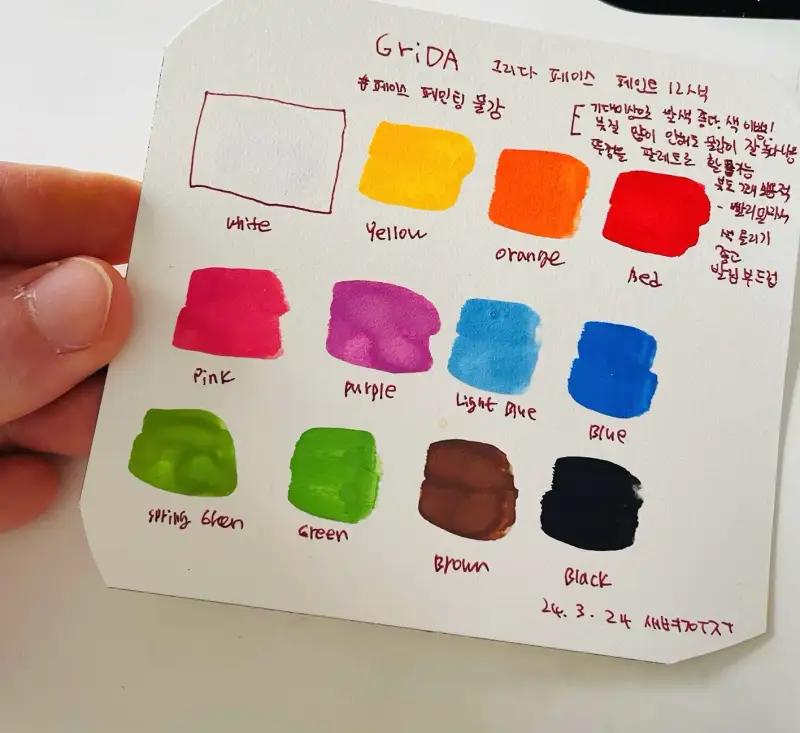 GRiDA 그리다 페이스 페인트 12색
#페이스 페인팅 물감
기대이상으로 발색 좋다. 색 이쁨!
붓질 많이 안해도 물감이 잘 녹아나옴
뚜껑을 팔레트로 활용가능
붓도 꽤 실용적
- 빨리 말라서
색 올리기
좋고
발림 부드럽
White
Yellow
Orange
Red
Pink
Purple
Light Blue
Blue
Spring Green
Green
Brown
Black
24. 3. 24